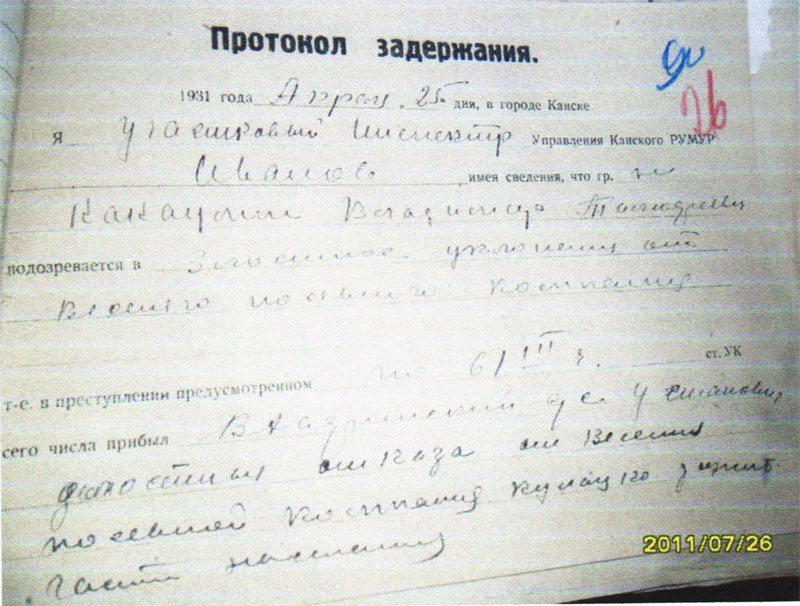 Протокол задержания.
90
26
1931 года Апрел. 25 дня, в городе Канске
Я участковый инспектр Управления Канского РУМУР
Иванов имея сведения, что гр.
Владимир
подозревается в Злостное уклонения от
Весенего посевного компания
т.-е. в преступлении предусмотренном по 61 III ч. ст. УК
сего числа прибыл В и установил
отказа от Весения
посевной компания кулацко зажит.
часть населения
2011/07/26